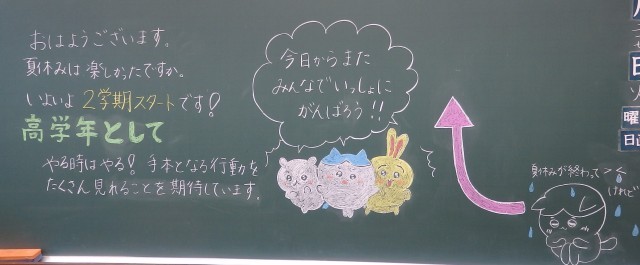 おはようございます。
夏休みは楽しかったですか。
いよいよ2学期スタートです!
高学年として
やる時はやる! 手本となる行動を
たくさん見れることを期待しています。
今日からまた
みんなでいっしょに
がんばろう!!
夏休みが終わって
けれど
曜
日